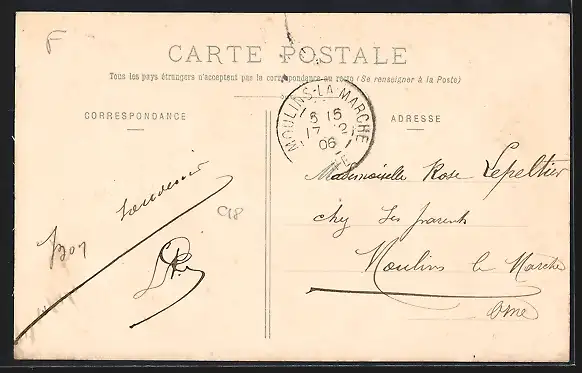 F
CARTE POSTALE
Tous les pays étrangers n'acceptent pas la correspondance au recto (Se renseigner à la Poste)
CORRESPONDANCE
ADRESSE
MOULINS-LA-MARCHE
5 15
17 2
06
Bon souvenir
C18
Mademoiselle Rose Lepeltier
chez ses parents
Moulins la Marche
Orne